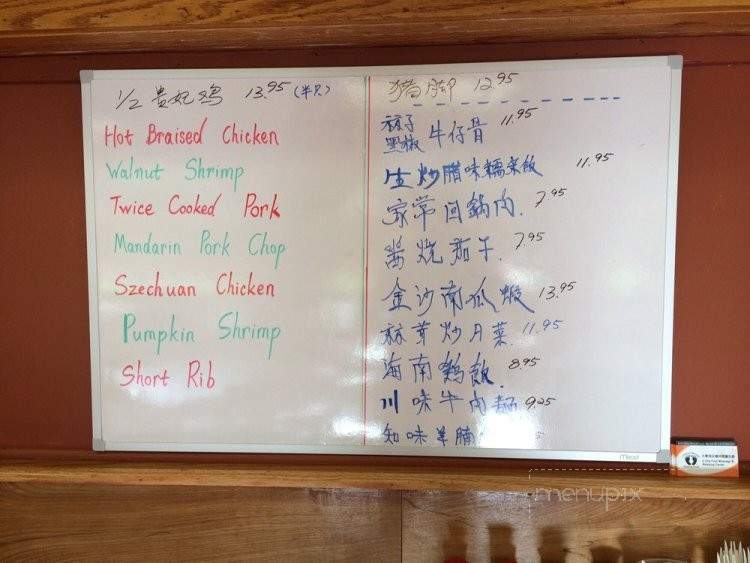 1/2 贵妃鸡 13.95 (半只)
Hot Braised Chicken
Walnut Shrimp
Twice Cooked Pork
Mandarin Pork Chop
Szechuan Chicken
Pumpkin Shrimp
Short Rib
猪脚 12.95
黑椒 牛仔骨 11.95
生炒腊味糯米飯 11.95
家常回鍋肉 7.95
酱烧茄子 7.95
金沙南瓜蝦 13.95
炒 菜 11.95
海南鸡飯 8.95
川味牛肉麵 9.25
味羊腩
mead
menupix